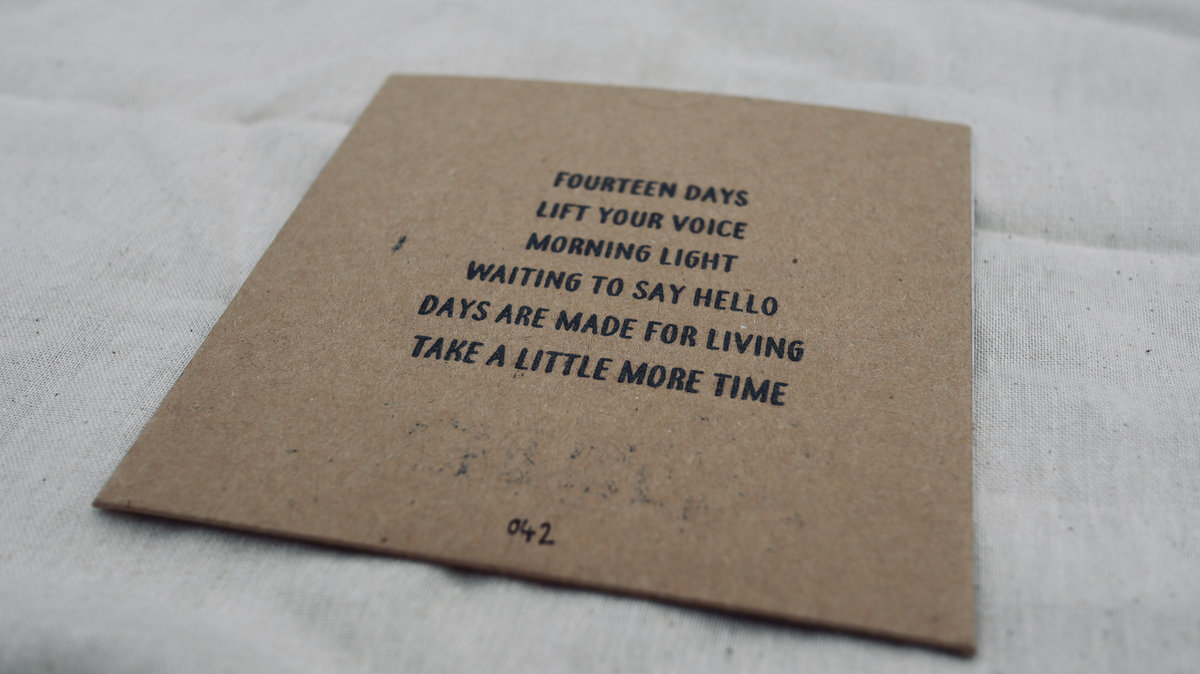 FOURTEEN DAYS
LIFT YOUR VOICE
MORNING LIGHT
WAITING TO SAY HELLO
DAYS ARE MADE FOR LIVING
TAKE A LITTLE MORE TIME
042